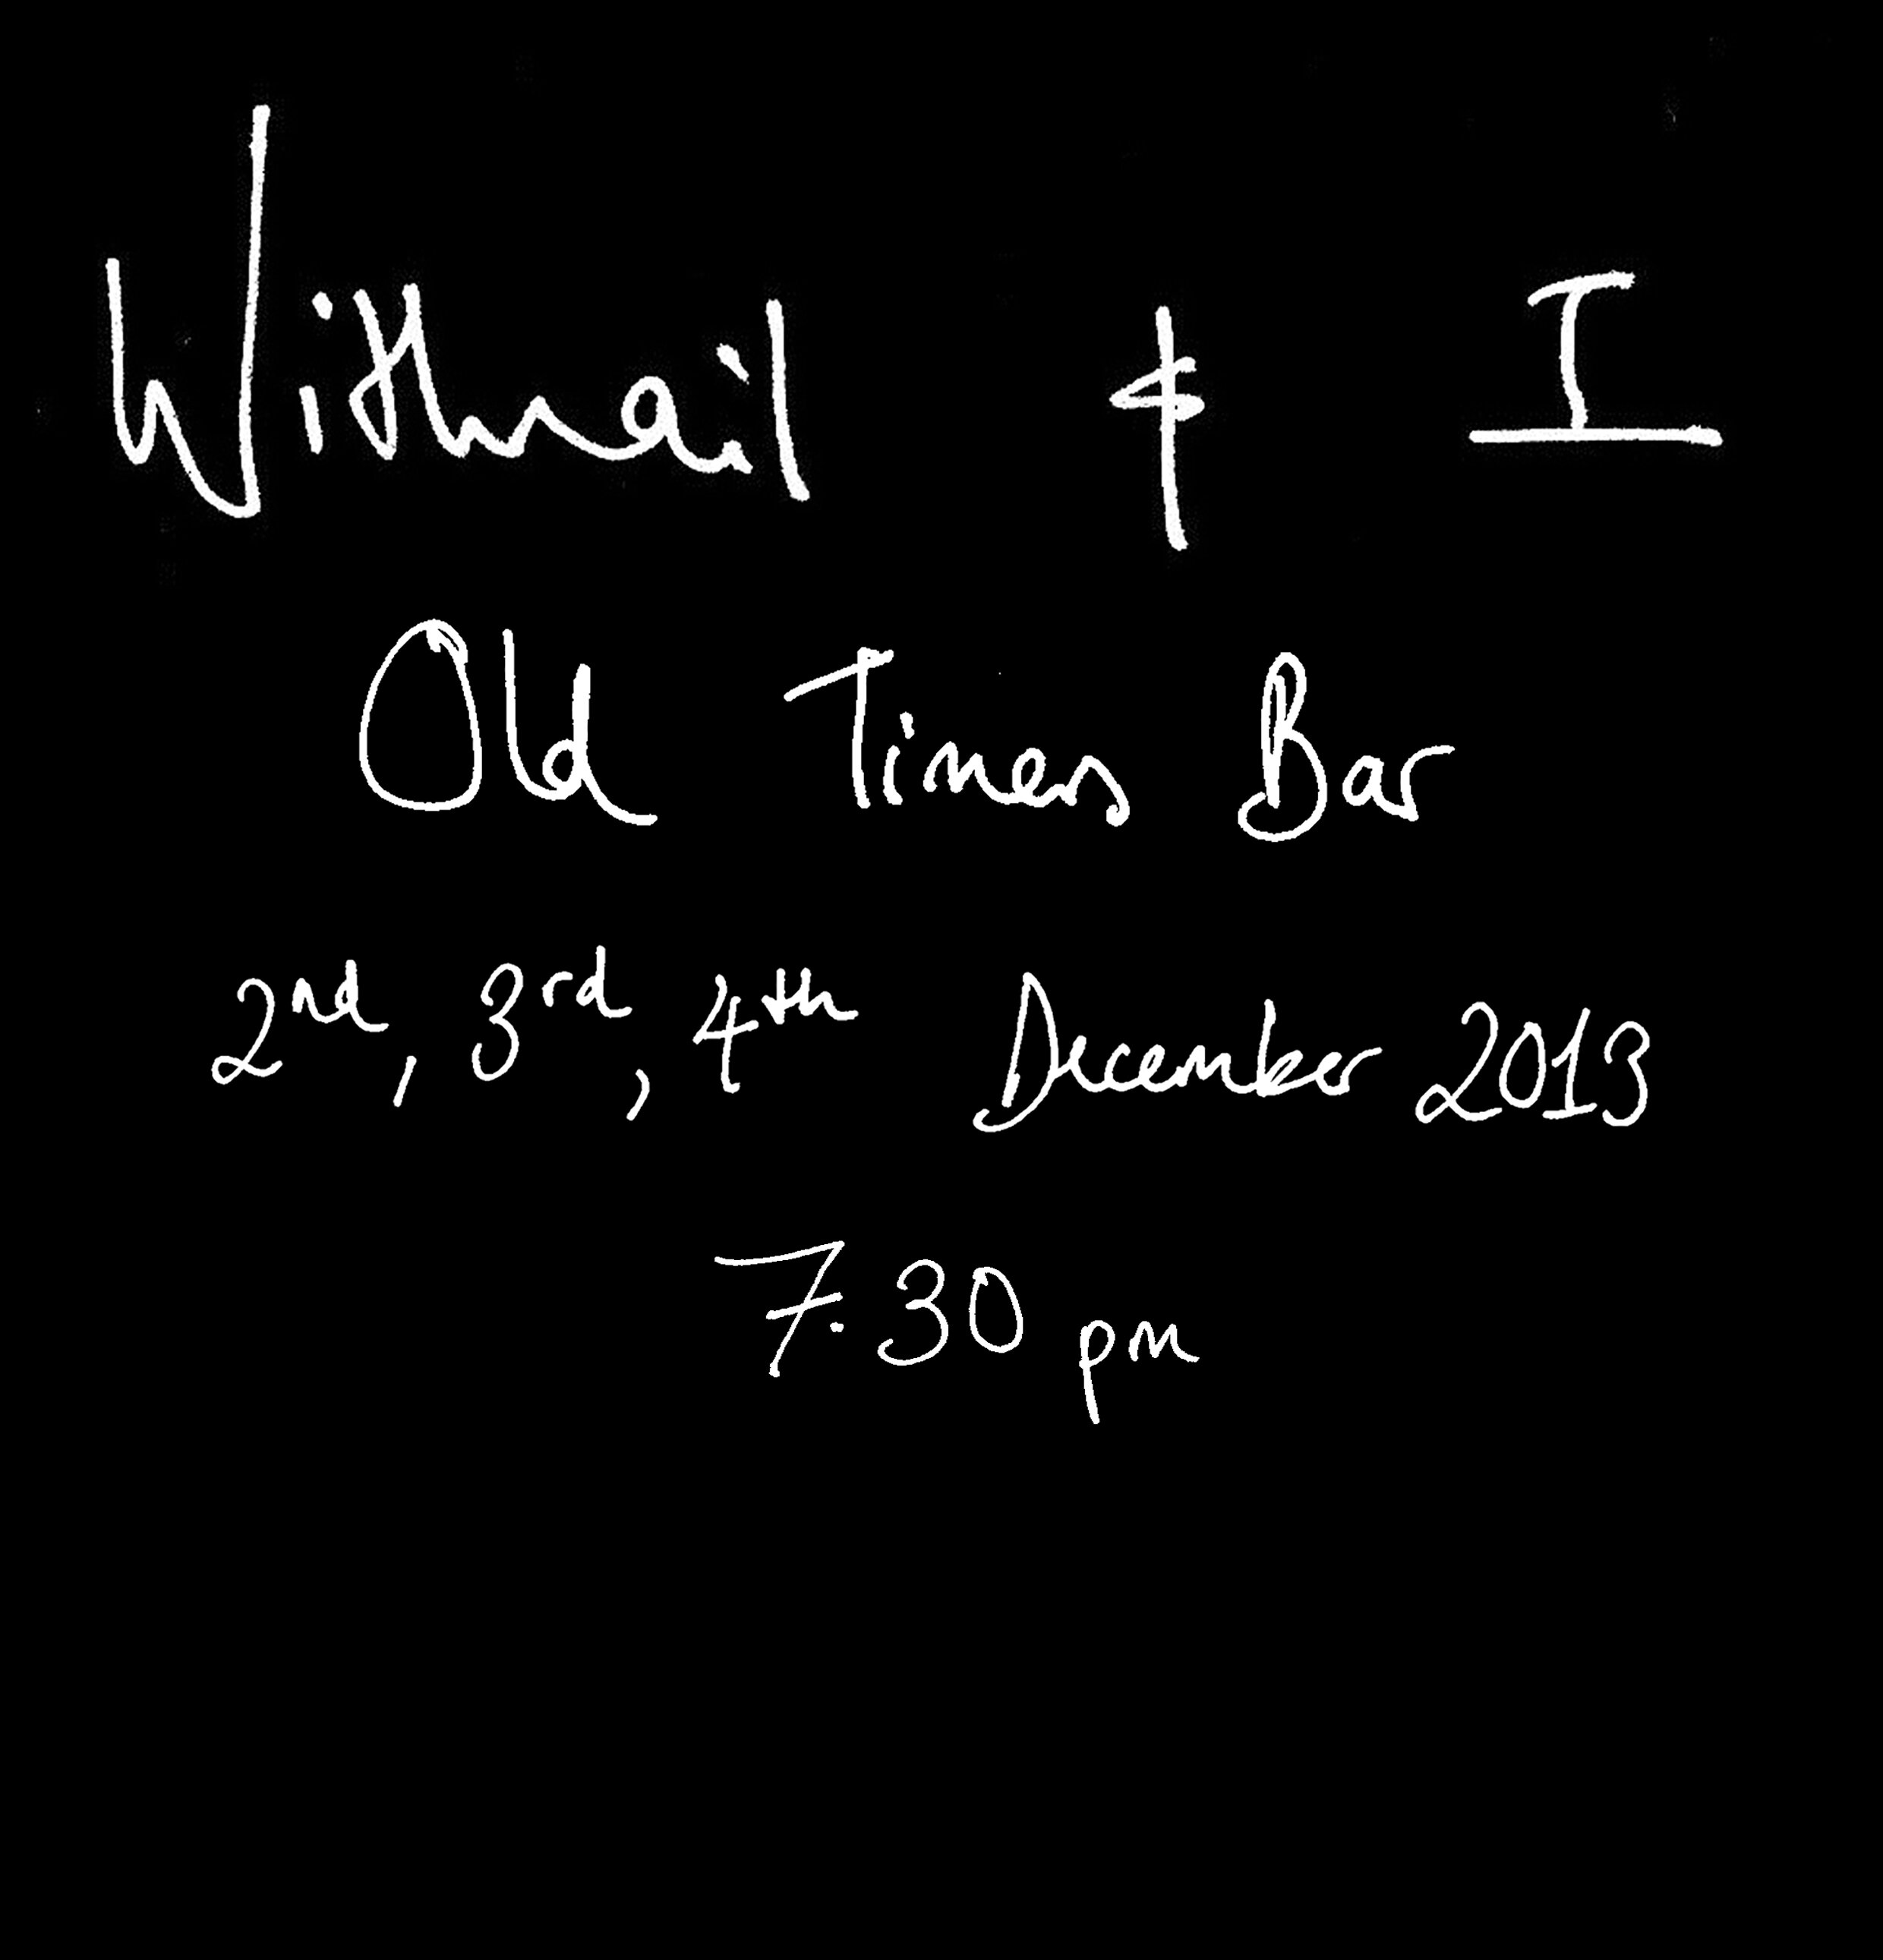 Withnail & I
Old Timers Bar
2nd, 3rd, 4th December 2013
7.30 pm